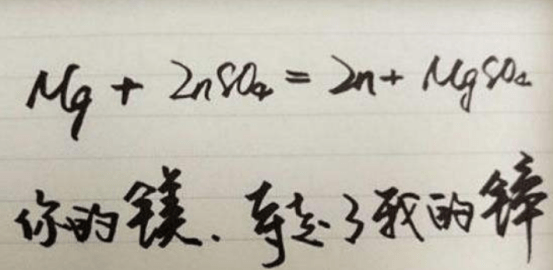 Mg + ZnSO₄ = Zn + MgSO₄
你的镁、夺走了我的锌